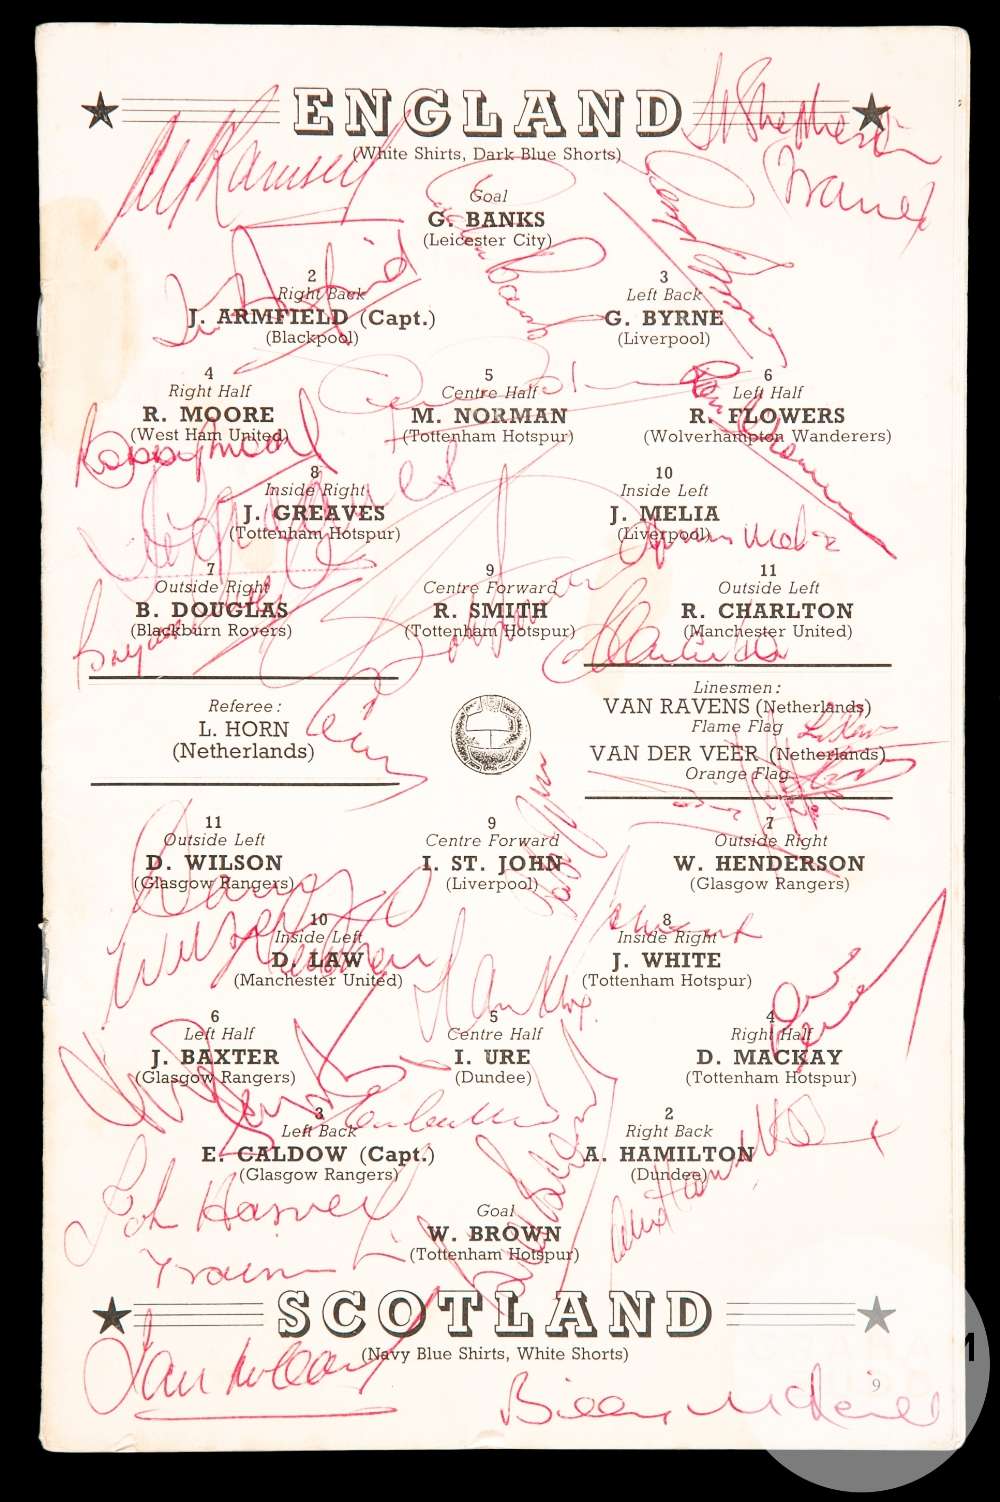 ENGLAND
(White Shirts, Dark Blue Shorts)
Goal
G. BANKS
(Leicester City)
2
Right Back
J. ARMFIELD (Capt.)
(Blackpool)
3
Left Back
G. BYRNE
(Liverpool)
4
Right Half
R. MOORE
(West Ham United)
5
Centre Half
M. NORMAN
(Tottenham Hotspur)
6
Left Half
R. FLOWERS
(Wolverhampton Wanderers)
Bobby Moore
8
Inside Right
J. GREAVES
(Tottenham Hotspur)
10
Inside Left
J. MELIA
(Liverpool)
7
Outside Right
B. DOUGLAS
(Blackburn Rovers)
9
Centre Forward
R. SMITH
(Tottenham Hotspur)
11
Outside Left
R. CHARLTON
(Manchester United)
Referee:
L. HORN
(Netherlands)
Linesmen:
VAN RAVENS (Netherlands)
Flame Flag
VAN DER VEER (Netherlands)
Orange Flag
11
Outside Left
D. WILSON
(Glasgow Rangers)
9
Centre Forward
I. ST. JOHN
(Liverpool)
7
Outside Right
W. HENDERSON
(Glasgow Rangers)
Davy Wilson
10
Inside Left
D. LAW
(Manchester United)
8
Inside Right
J. WHITE
(Tottenham Hotspur)
6
Left Half
J. BAXTER
(Glasgow Rangers)
5
Centre Half
I. URE
(Dundee)
4
Right Half
D. MACKAY
(Tottenham Hotspur)
3
Left Back
E. CALDOW (Capt.)
(Glasgow Rangers)
2
Right Back
A. HAMILTON
(Dundee)
Alex Hamilton
Goal
W. BROWN
(Tottenham Hotspur)
SCOTLAND
(Navy Blue Shirts, White Shorts)
Billy McNeill
9